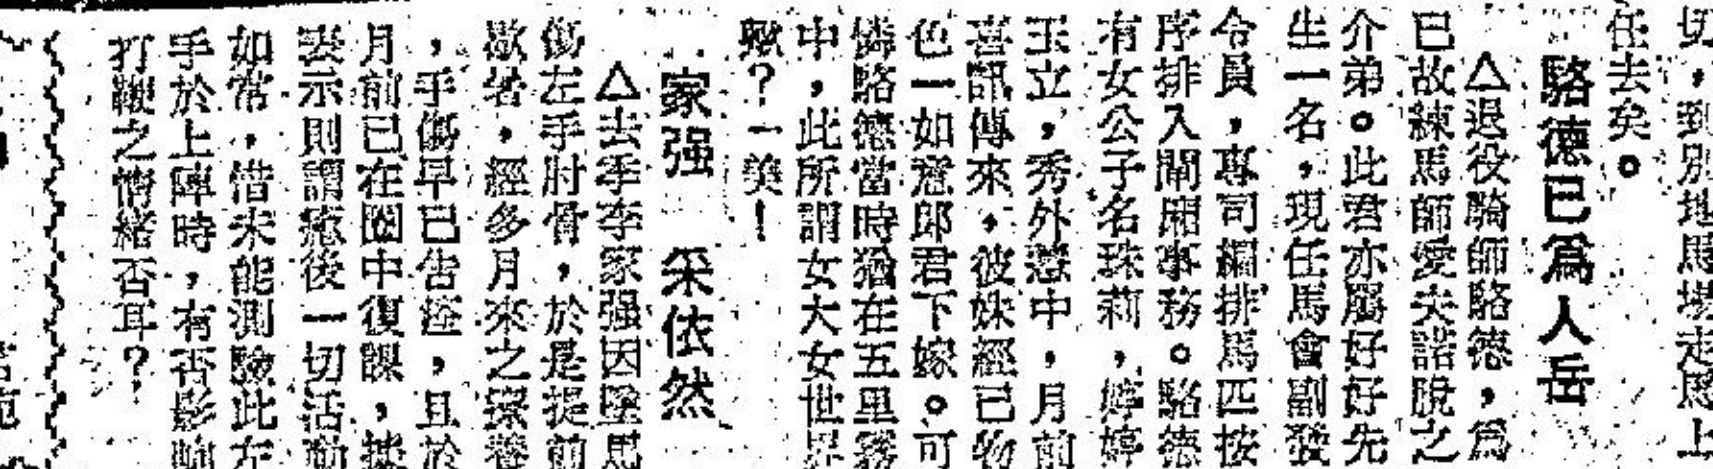 切，到別地馬塲走馬上
任去矣。
駱德已爲人岳
△退役騎師駱德，爲
已故練馬師愛夫諾脫之
介弟。此君亦屬好好先
生一名，現任馬會副發
令員，專司編排馬匹按
序排入閘廂事務。駱德
有女公子名珠莉，婷婷
玉立，秀外慧中，月前
喜訊傳來，彼姝經已物
色一如意郎君下嫁。可
憐駱德當時猶在五里霧
中，此所謂女大女世界
歟？一笑！
家强 采依然
△去季李家强因墜馬
傷左手肘骨，於是提前
歇暑，經多月來之療養
，手傷早已告痊，且於
月前已在圈中復課，據
表示則謂癒後一切活動
如常，惜未能測驗此左
手於上陣時，有否影响
打鞭之情緒否耳？